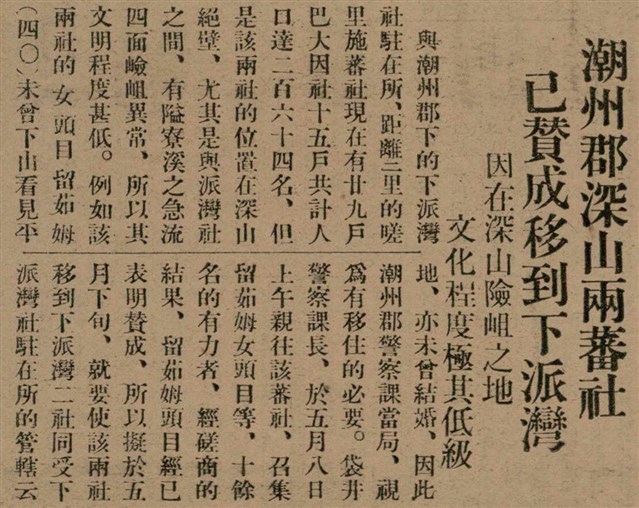 潮州郡深山兩蕃社
已贊成移到下派灣
因在深山險岨之地
文化程度極其低級
與潮州郡下的下派灣
社駐在所、距離三里的嗟
里施蕃社現在有廿九戶
巴大因社十五戶共計人
口達二百六十四名、但
是該兩社的位置在深山
絕壁、尤其是與派灣社
之間、有隘寮溪之急流
四面嶮岨異常、所以其
文明程度甚低。例如該
兩社的女頭目留茹姆
(四〇)未曾下山看見平
地、亦未曾結婚、因此
潮州郡警察課當局、視
爲有移住的必要。袋井
警察課長、於五月八日
上午親往該蕃社、召集
留茹姆女頭目等、十餘
名的有力者、經磋商的
結果、留茹姆頭目經已
表明贊成、所以擬於五
月下旬、就要使該兩社
移到下派灣二社同受下
派灣社駐在所的管轄云